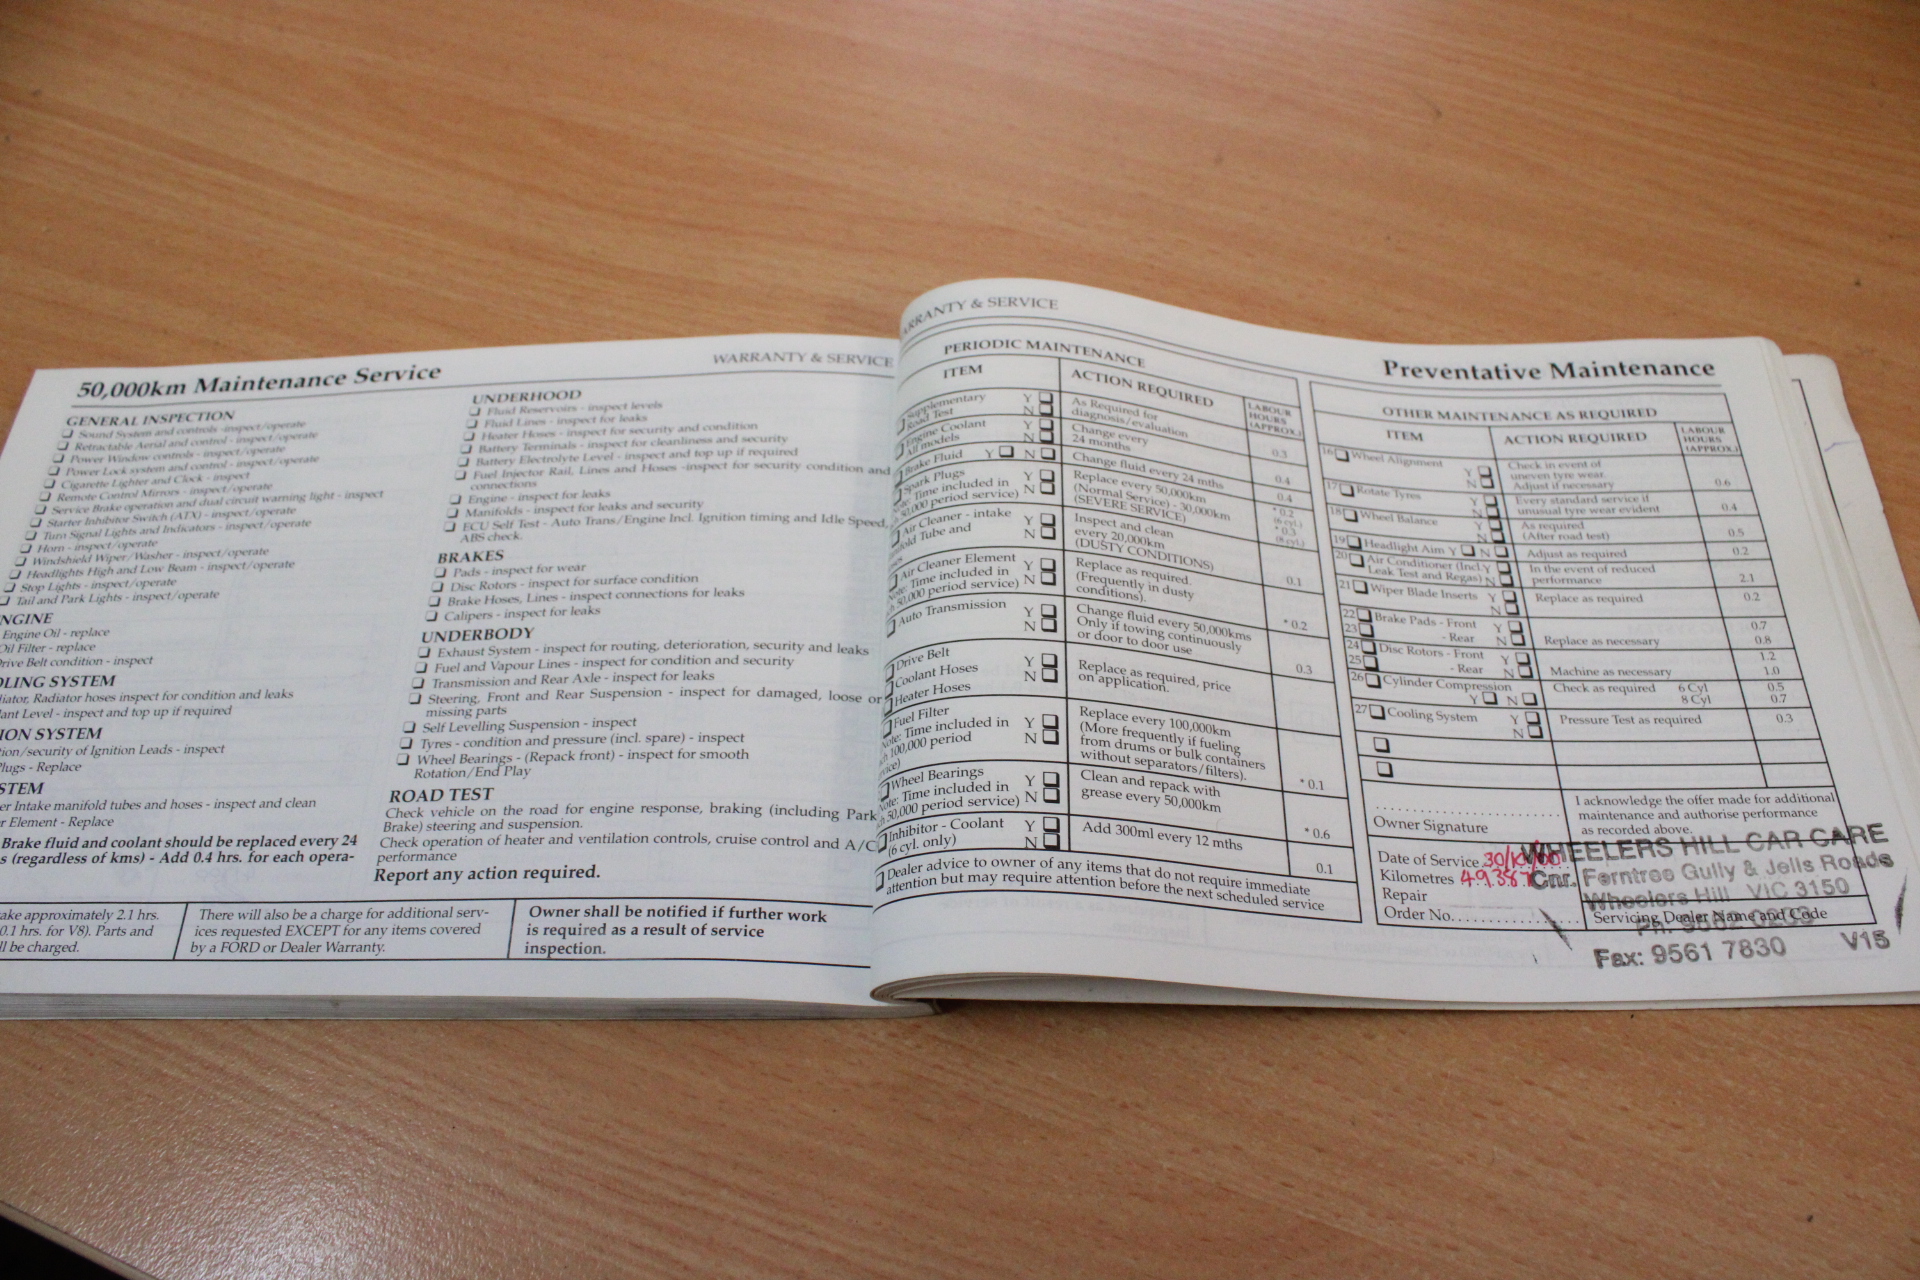 WARRANTY & SERVICE
50,000km Maintenance Service
GENERAL INSPECTION
Sound System and controls -inspect/operate
Retractable Aerial and control - inspect/operate
Power Window controls - inspect/operate
Power Lock system and control - inspect/operate
Cigarette Lighter and Clock - inspect
Remote Control Mirrors - inspect/operate
Service Brake operation and dual circuit warning light - inspect
Starter Inhibitor Switch (ATX) - inspect/operate
Turn Signal Lights and Indicators - inspect/operate
Horn - inspect/operate
Windshield Wiper/Washer - inspect/operate
Headlights High and Low Beam - inspect/operate
Stop Lights - inspect/operate
Tail and Park Lights - inspect/operate
NGINE
Engine Oil - replace
Oil Filter - replace
Drive Belt condition - inspect
OLING SYSTEM
diator, Radiator hoses inspect for condition and leaks
lant Level - inspect and top up if required
ION SYSTEM
tion/security of Ignition Leads - inspect
Plugs - Replace
STEM
er Intake manifold tubes and hoses - inspect and clean
r Element - Replace
Brake fluid and coolant should be replaced every 24
s (regardless of kms) - Add 0.4 hrs. for each opera-
UNDERHOOD
Fluid Reservoirs - inspect levels
Fluid Lines - inspect for leaks
Heater Hoses - inspect for security and condition
Battery Terminals - inspect for cleanliness and security
Battery Electrolyte Level - inspect and top up if required
Fuel Injector Rail, Lines and Hoses -inspect for security condition and
connections
Engine - inspect for leaks
Manifolds - inspect for leaks and security
ECU Self Test - Auto Trans/Engine Incl. Ignition timing and Idle Speed,
ABS check.
BRAKES
Pads - inspect for wear
Disc Rotors - inspect for surface condition
Brake Hoses, Lines - inspect connections for leaks
Calipers - inspect for leaks
UNDERBODY
Exhaust System - inspect for routing, deterioration, security and leaks
Fuel and Vapour Lines - inspect for condition and security
Transmission and Rear Axle - inspect for leaks
Steering, Front and Rear Suspension - inspect for damaged, loose or
missing parts
Self Levelling Suspension - inspect
Tyres - condition and pressure (incl. spare) - inspect
Wheel Bearings - (Repack front) - inspect for smooth
Rotation/End Play
ROAD TEST
Check vehicle on the road for engine response, braking (including Park
Brake) steering and suspension.
Check operation of heater and ventilation controls, cruise control and A/C
performance
Report any action required.
ake approximately 2.1 hrs.
0.1 hrs. for V8). Parts and
ll be charged.
There will also be a charge for additional serv-
ices requested EXCEPT for any items covered
by a FORD or Dealer Warranty.
Owner shall be notified if further work
is required as a result of service
inspection.
ARRANTY & SERVICE
PERIODIC MAINTENANCE
ITEM ACTION REQUIRED LABOUR HOURS (APPROX.)
Supplementary Y As Required for
Road Test N diagnosis/evaluation
Engine Coolant Y Change every 0.3
All models N 24 months
Brake Fluid Y N Change fluid every 24 mths 0.4
Spark Plugs Y Replace every 50,000km 0.4
Time included in N (Normal Service) - 30,000km * 0.2 (6 cyl.)
50,000 period service) (SEVERE SERVICE) * 0.3 (8 cyl.)
Air Cleaner - intake Y Inspect and clean
fold Tube and N every 20,000km
(DUSTY CONDITIONS) 0.1
Air Cleaner Element Y Replace as required.
Note: Time included in N (Frequently in dusty
50,000 period service) conditions). * 0.2
Auto Transmission Y Change fluid every 50,000kms
N Only if towing continuously
or door to door use 0.3
Drive Belt
Coolant Hoses Y Replace as required, price
Heater Hoses N on application.
Fuel Filter Replace every 100,000km
Note: Time included in Y (More frequently if fueling
100,000 period N from drums or bulk containers
without separators/filters). * 0.1
Wheel Bearings Y Clean and repack with
Note: Time included in N grease every 50,000km
50,000 period service) * 0.6
Inhibitor - Coolant Y Add 300ml every 12 mths
(6 cyl. only) N 0.1
Dealer advice to owner of any items that do not require immediate
attention but may require attention before the next scheduled service
Preventative Maintenance
OTHER MAINTENANCE AS REQUIRED
ITEM ACTION REQUIRED LABOUR HOURS (APPROX.)
16 Wheel Alignment Y N Check in event of
uneven tyre wear.
Adjust if necessary 0.6
17 Rotate Tyres Y N Every standard service if
unusual tyre wear evident 0.4
18 Wheel Balance Y N As required
(After road test) 0.5
19 Headlight Aim Y N Adjust as required 0.2
20 Air Conditioner (Incl. Y In the event of reduced
Leak Test and Regas) N performance 2.1
21 Wiper Blade Inserts Y N Replace as required 0.2
22 Brake Pads - Front Y 0.7
23 - Rear N Replace as necessary 0.8
24 Disc Rotors - Front Y 1.2
25 - Rear N Machine as necessary 1.0
26 Cylinder Compression Check as required 6 Cyl 0.5
Y N 8 Cyl 0.7
27 Cooling System Y N Pressure Test as required 0.3
Owner Signature
I acknowledge the offer made for additional
maintenance and authorise performance
as recorded above.
Date of Service 30/10/00
Kilometres 49387
Repair
Order No.
WHEELERS HILL CAR CARE
Cnr. Ferntree Gully & Jells Roads
Wheelers Hill VIC 3150
Servicing Dealer Name and Code
Ph: 9562 0203
Fax: 9561 7830 V15